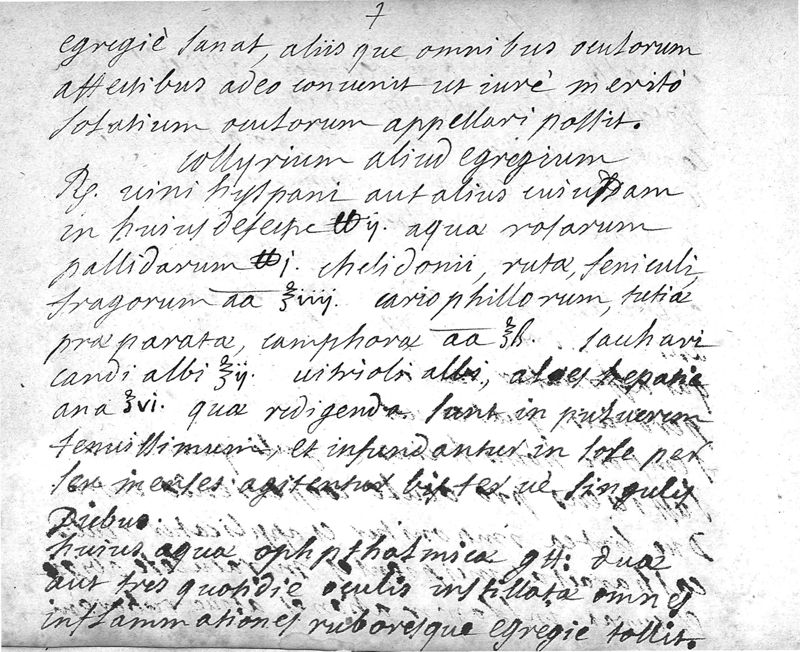 7
egregiè sanat, aliisque omnibus oculorum
affectibus adeo convenit ut iurè meritò
solatium oculorum appellari possit.
collyrium aliud egregium
℞. vini hyspani aut alius cuiusdam
in huius defectu ℔ ij. aquæ rosarum
pallidarum ℔ j. chelidonii, rutæ, feniculi,
fragorum aa ℥ iiij. cariophillorum, tutiæ
præparatæ, camphoræ aa ℥ ß. sachari
candi albi ℥ ij. vitrioli albi, aloes hepaticæ
ana ʒ vi. quæ redigenda sunt in pulverem
tenuissimum, et infundantur in sole per
sex menses agitentur bis ter vè singulis
diebus.
huius aquæ ophpthalmicæ gtt: duæ
aut tres quotidie oculis instillatæ omnes
inflammationes ruboresque egregiè tollit.